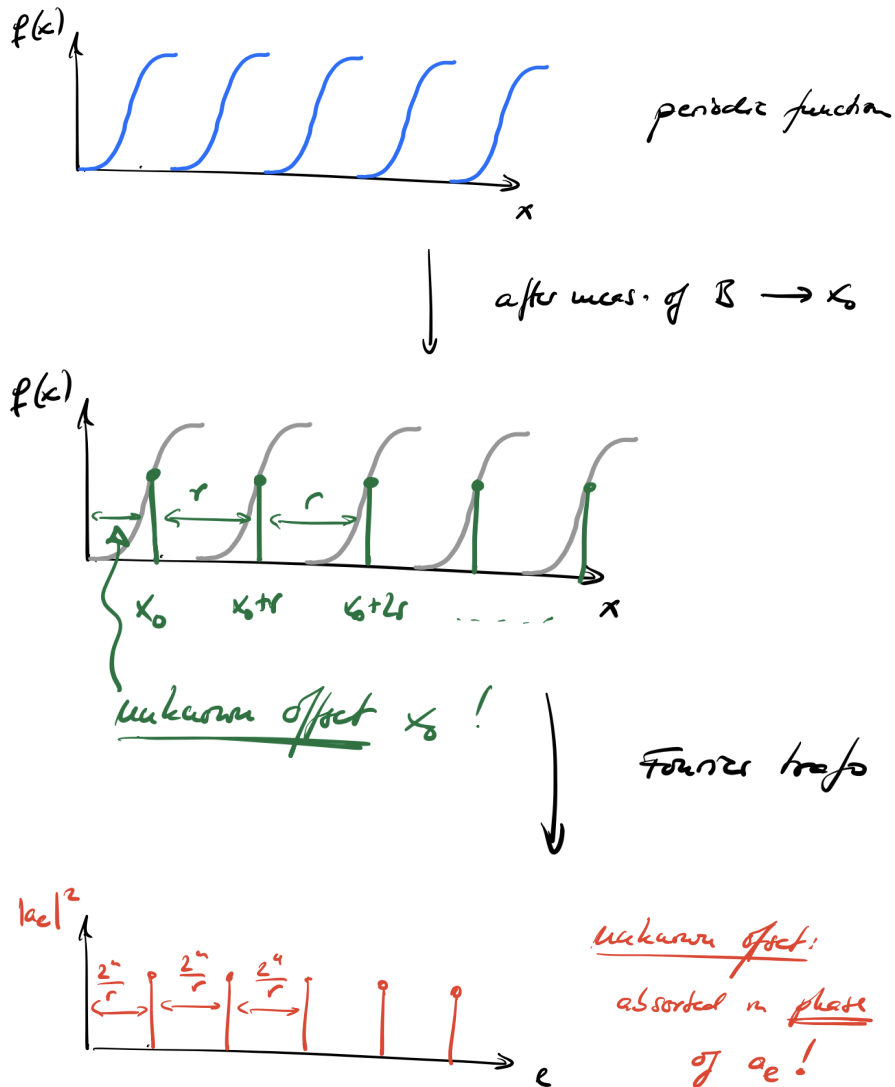 f(x)
periodic function
x
after meas. of B → x₀
f(x)
r
r
x₀
x₀+r
x₀+2r
......
x
unknown offset x₀ !
Fourier trafo
|aₑ|²
2ⁿ/r
2ⁿ/r
2ⁿ/r
unknown offset:
absorbed in phase
of aₑ !
e